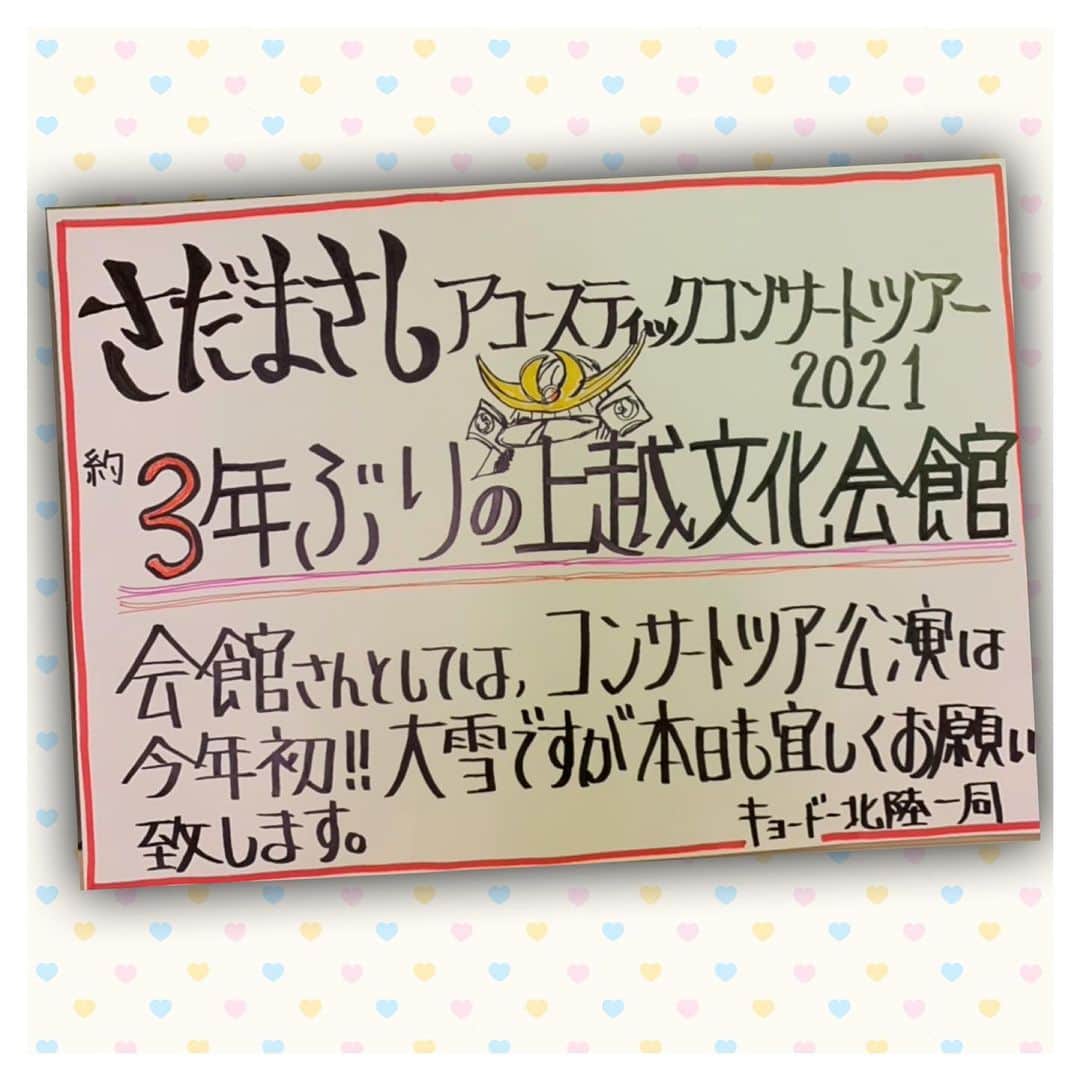 さだまさしアコースティックコンサートツアー
2021
約3年ぶりの上越文化会館
会館さんとしては,コンサートツアー公演は
今年初!!大雪ですが本日も宜しくお願い
致します。
キョードー北陸一同